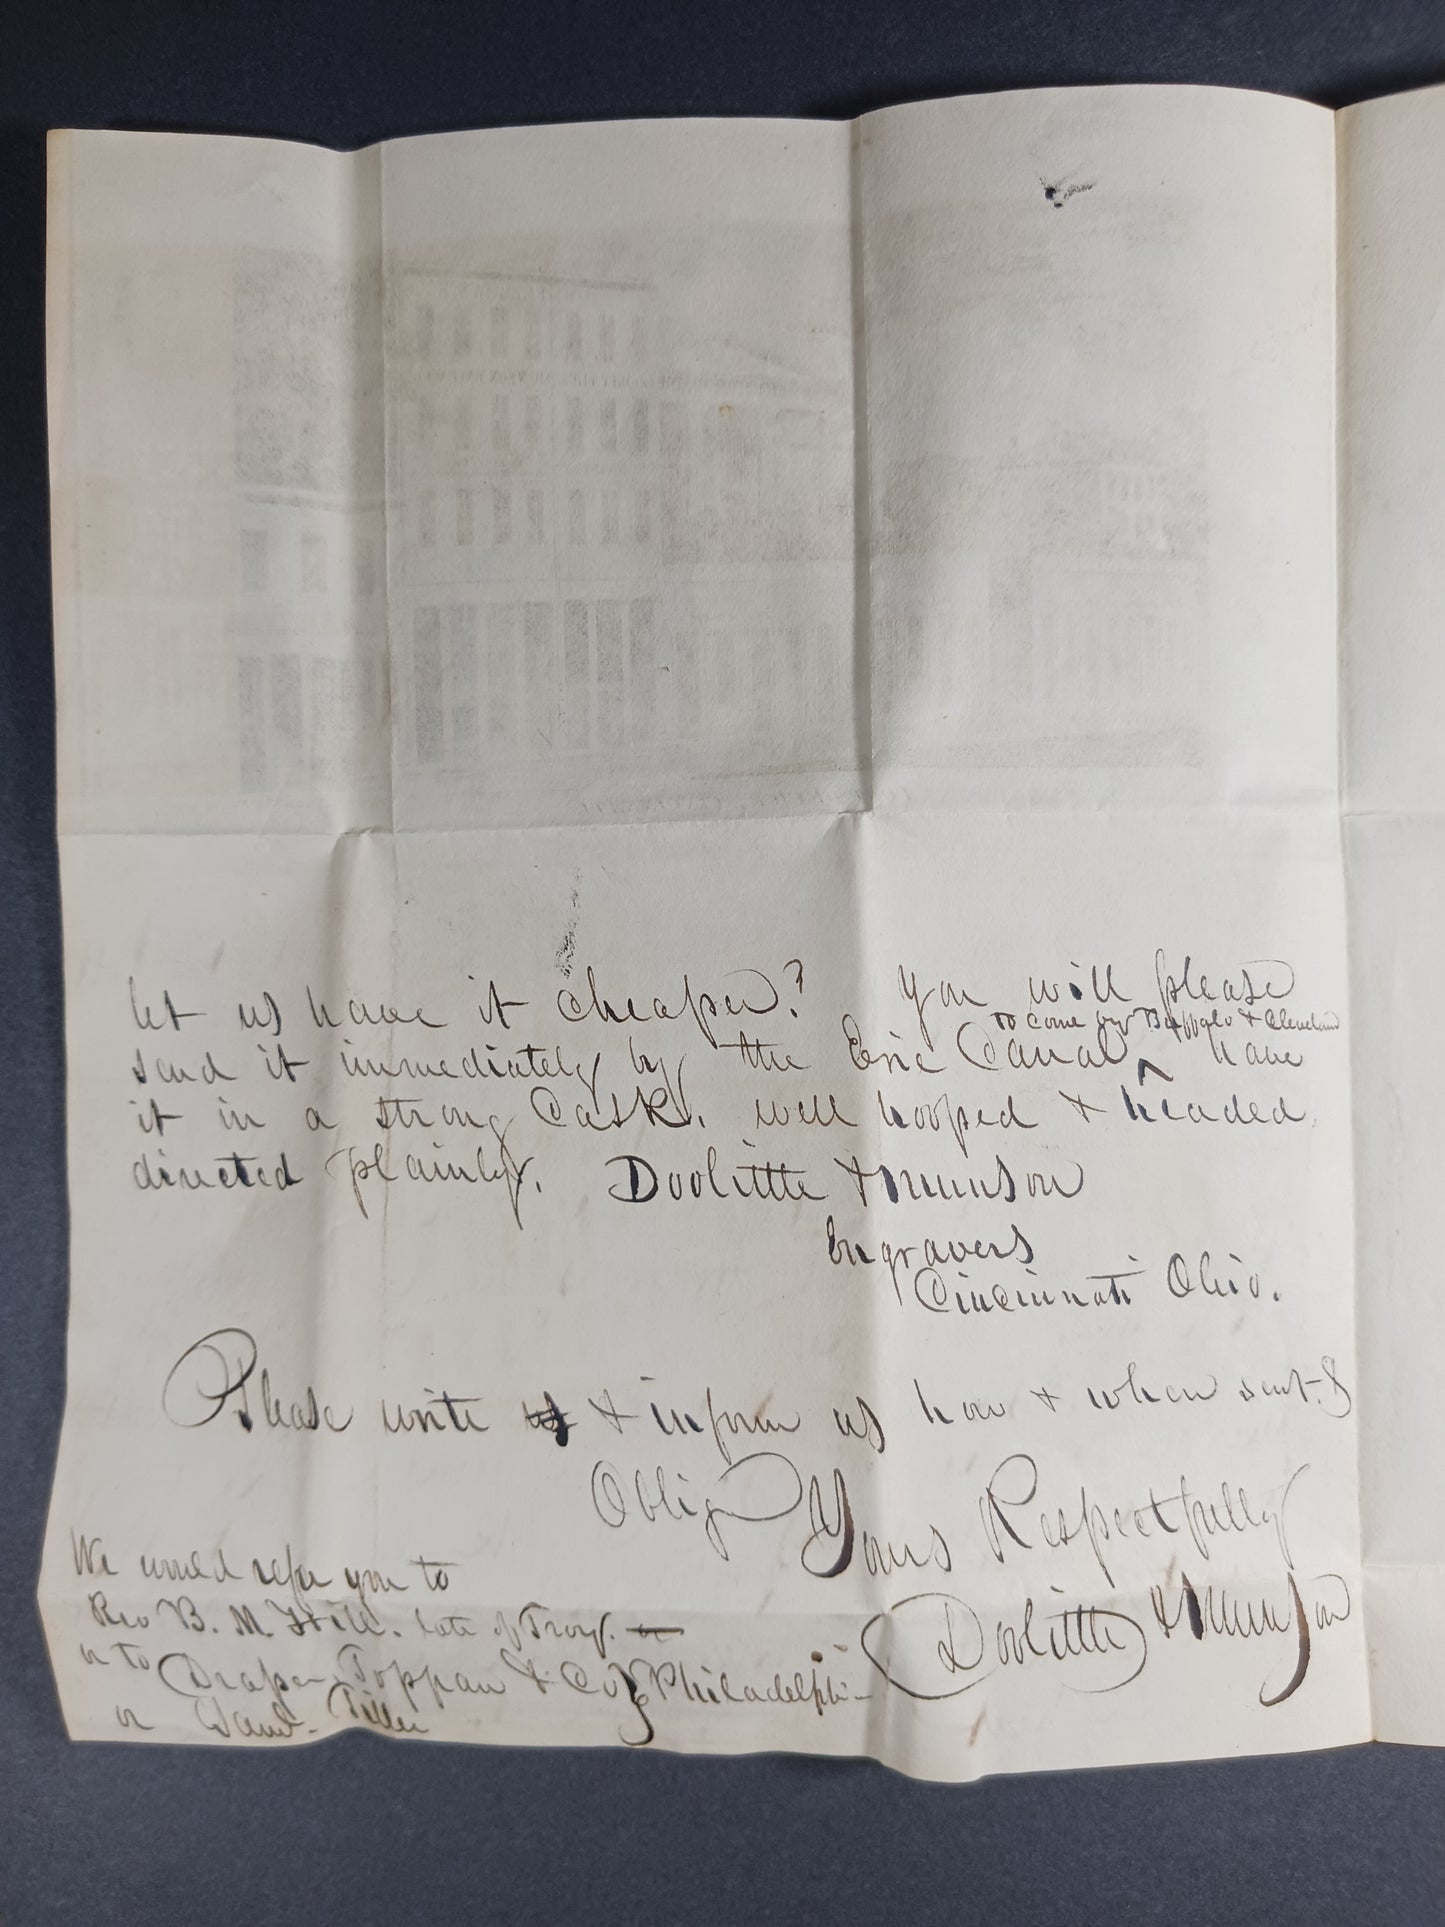 let us have it cheaper? You will please
send it immediately by the Erie Canal ^ to come by Buffalo & Cleveland have
it in a strong Cask, well hooped & headed,
directed plainly. Doolittle & Munson
Engravers
Cincinnati Ohio.
Please write us & inform us how & when sent. &
Oblige
Yours Respectfully
Doolittle & Munson
We would refer you to
Rev B. M. Hill. late of Troy. or
or to Draper Toppan & Co Philadelphia
or